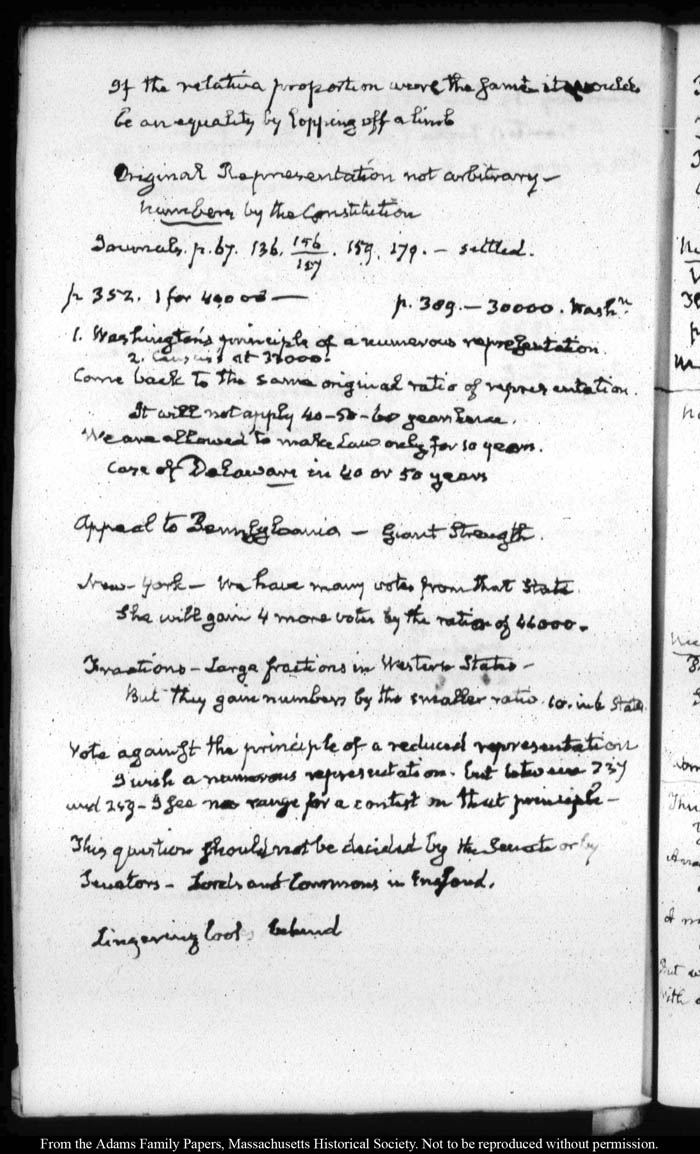 If the relative proportion were the same it would
be an equality by lopping off a limb
Original Representation not arbitrary —
numbers by the Constitution
Journals. p. 67. 136. 156/157. 159. 179. — settled.
p 352. 1 for 40000 — p. 389. — 30000. Washn.
1. Washington's principle of a numerous representation
2. Census at 33000.
Come back to the same original ratio of representation.
It will not apply 40–50–60 years hence.
We are allowed to make Law only for 10 years.
Case of Delaware in 40 or 50 years
Appeal to Pennsylvania — Giant Strength.
New-York — We have many votes from that State.
She will gain 4 more votes by the ratio of 46000.
Fractions — Large fractions in Western States —
But they gain numbers by the smaller ratio. 60. in 6 States
Vote against the principle of a reduced representation
I wish a numerous representation. but between 237
and 249 — I see no range for a contest on that principle —
This question should not be decided by the Senate or by
Senators — Lords and Commons in England.
Lingering look behind
From the Adams Family Papers, Massachusetts Historical Society. Not to be reproduced without permission.